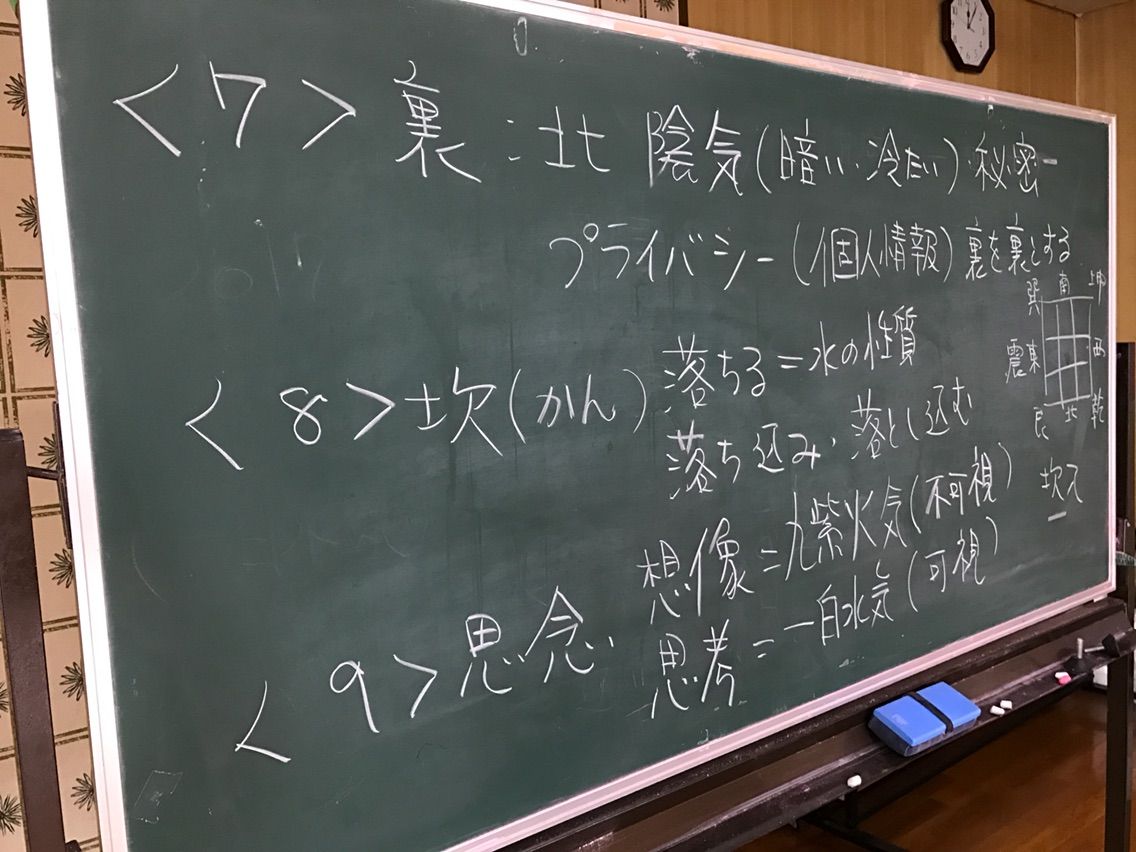 <7> 裏:北 陰気(暗い・冷たい)・秘密
プライバシー(個人情報)裏を裏とする
<8>坎(かん)落ちる=水の性質
落ち込み・落とし込む
<9>思念・想像=九紫火気(不可視)
思考=一白水気(可視)
巽 南 坤
震東 西
艮 北 乾